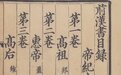 前漢書目錄
帝紀
第一卷
高祖
第二卷
惠帝
第三卷
高后